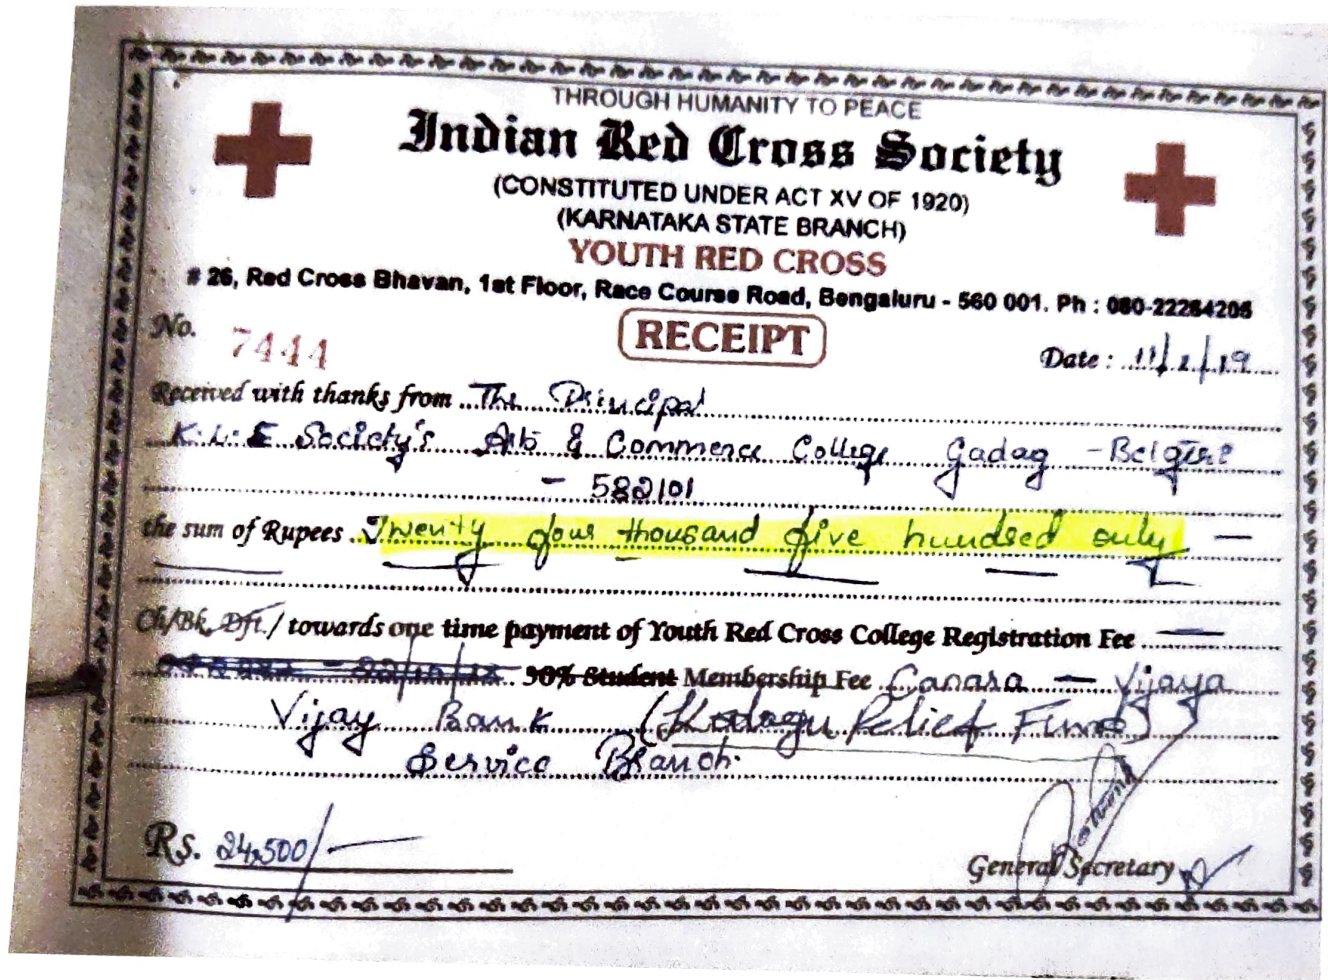 THROUGH HUMANITY TO PEACE
Indian Red Cross Society
(CONSTITUTED UNDER ACT XV OF 1920)
(KARNATAKA STATE BRANCH)
YOUTH RED CROSS
# 26, Red Cross Bhavan, 1st Floor, Race Course Road, Bengaluru - 560 001. Ph : 080-22264205
No. 7444 RECEIPT Date : 11/1/19
Received with thanks from The Principal
K.L.E Society's Arts & Commerce College Gadag -
- 582101
the sum of Rupees Twenty four thousand five hundred only
Ch/Bk. Dft./ towards one time payment of Youth Red Cross College Registration Fee
50% Student Membership Fee Canara - Vijaya
Vijay Bank (Kodagu Relief Fund)
Service Branch.
Rs. 24,500/-
General Secretary